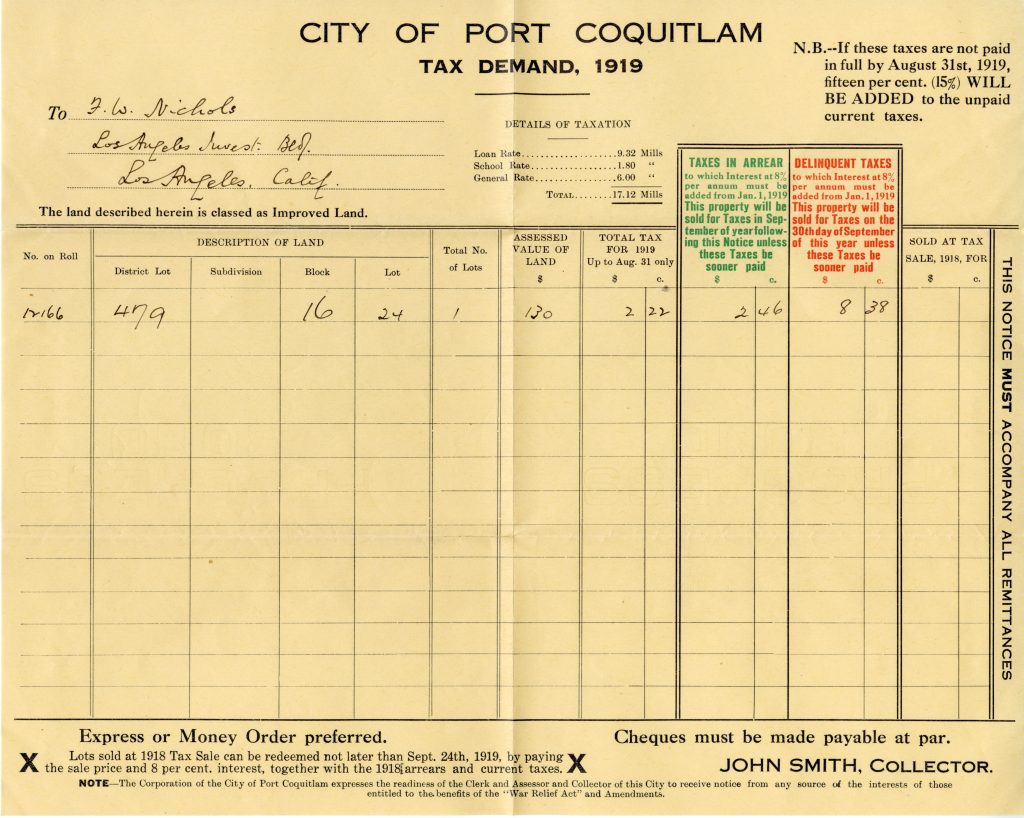 CITY OF PORT COQUITLAM
TAX DEMAND, 1919
N.B.--If these taxes are not paid
in full by August 31st, 1919,
fifteen per cent. (15%) WILL
BE ADDED to the unpaid
current taxes.
To F. W. Nichols
Los Angeles Invest. Bld.
Los Angeles, Calif.
The land described herein is classed as Improved Land.
DETAILS OF TAXATION
Loan Rate......................9.32 Mills
School Rate...................1.80 "
General Rate..................6.00 "
TOTAL........17.12 Mills
TAXES IN ARREAR
to which Interest at 8%
per annum must be
added from Jan. 1, 1919
This property will be
sold for Taxes in Sep-
tember of year follow-
ing this Notice unless
these Taxes be
sooner paid
$ c.
DELINQUENT TAXES
to which Interest at 8%
per annum must be
added from Jan. 1, 1919
This property will be
sold for Taxes on the
30th day of September
of this year unless
these Taxes be
sooner paid
$ c.
No. on Roll
DESCRIPTION OF LAND
District Lot Subdivision Block Lot
Total No.
of Lots
ASSESSED
VALUE OF
LAND
$
TOTAL TAX
FOR 1919
Up to Aug. 31 only
$ c.
SOLD AT TAX
SALE, 1918, FOR
$ c.
12166 479 16 24 1 130 2 22 2 46 8 38
THIS NOTICE MUST ACCOMPANY ALL REMITTANCES
Express or Money Order preferred.
Cheques must be made payable at par.
X Lots sold at 1918 Tax Sale can be redeemed not later than Sept. 24th, 1919, by paying X
the sale price and 8 per cent. interest, together with the 1918 arrears and current taxes.
JOHN SMITH, COLLECTOR.
NOTE—The Corporation of the City of Port Coquitlam expresses the readiness of the Clerk and Assessor and Collector of this City to receive notice from any source of the interests of those
entitled to the benefits of the "War Relief Act" and Amendments.